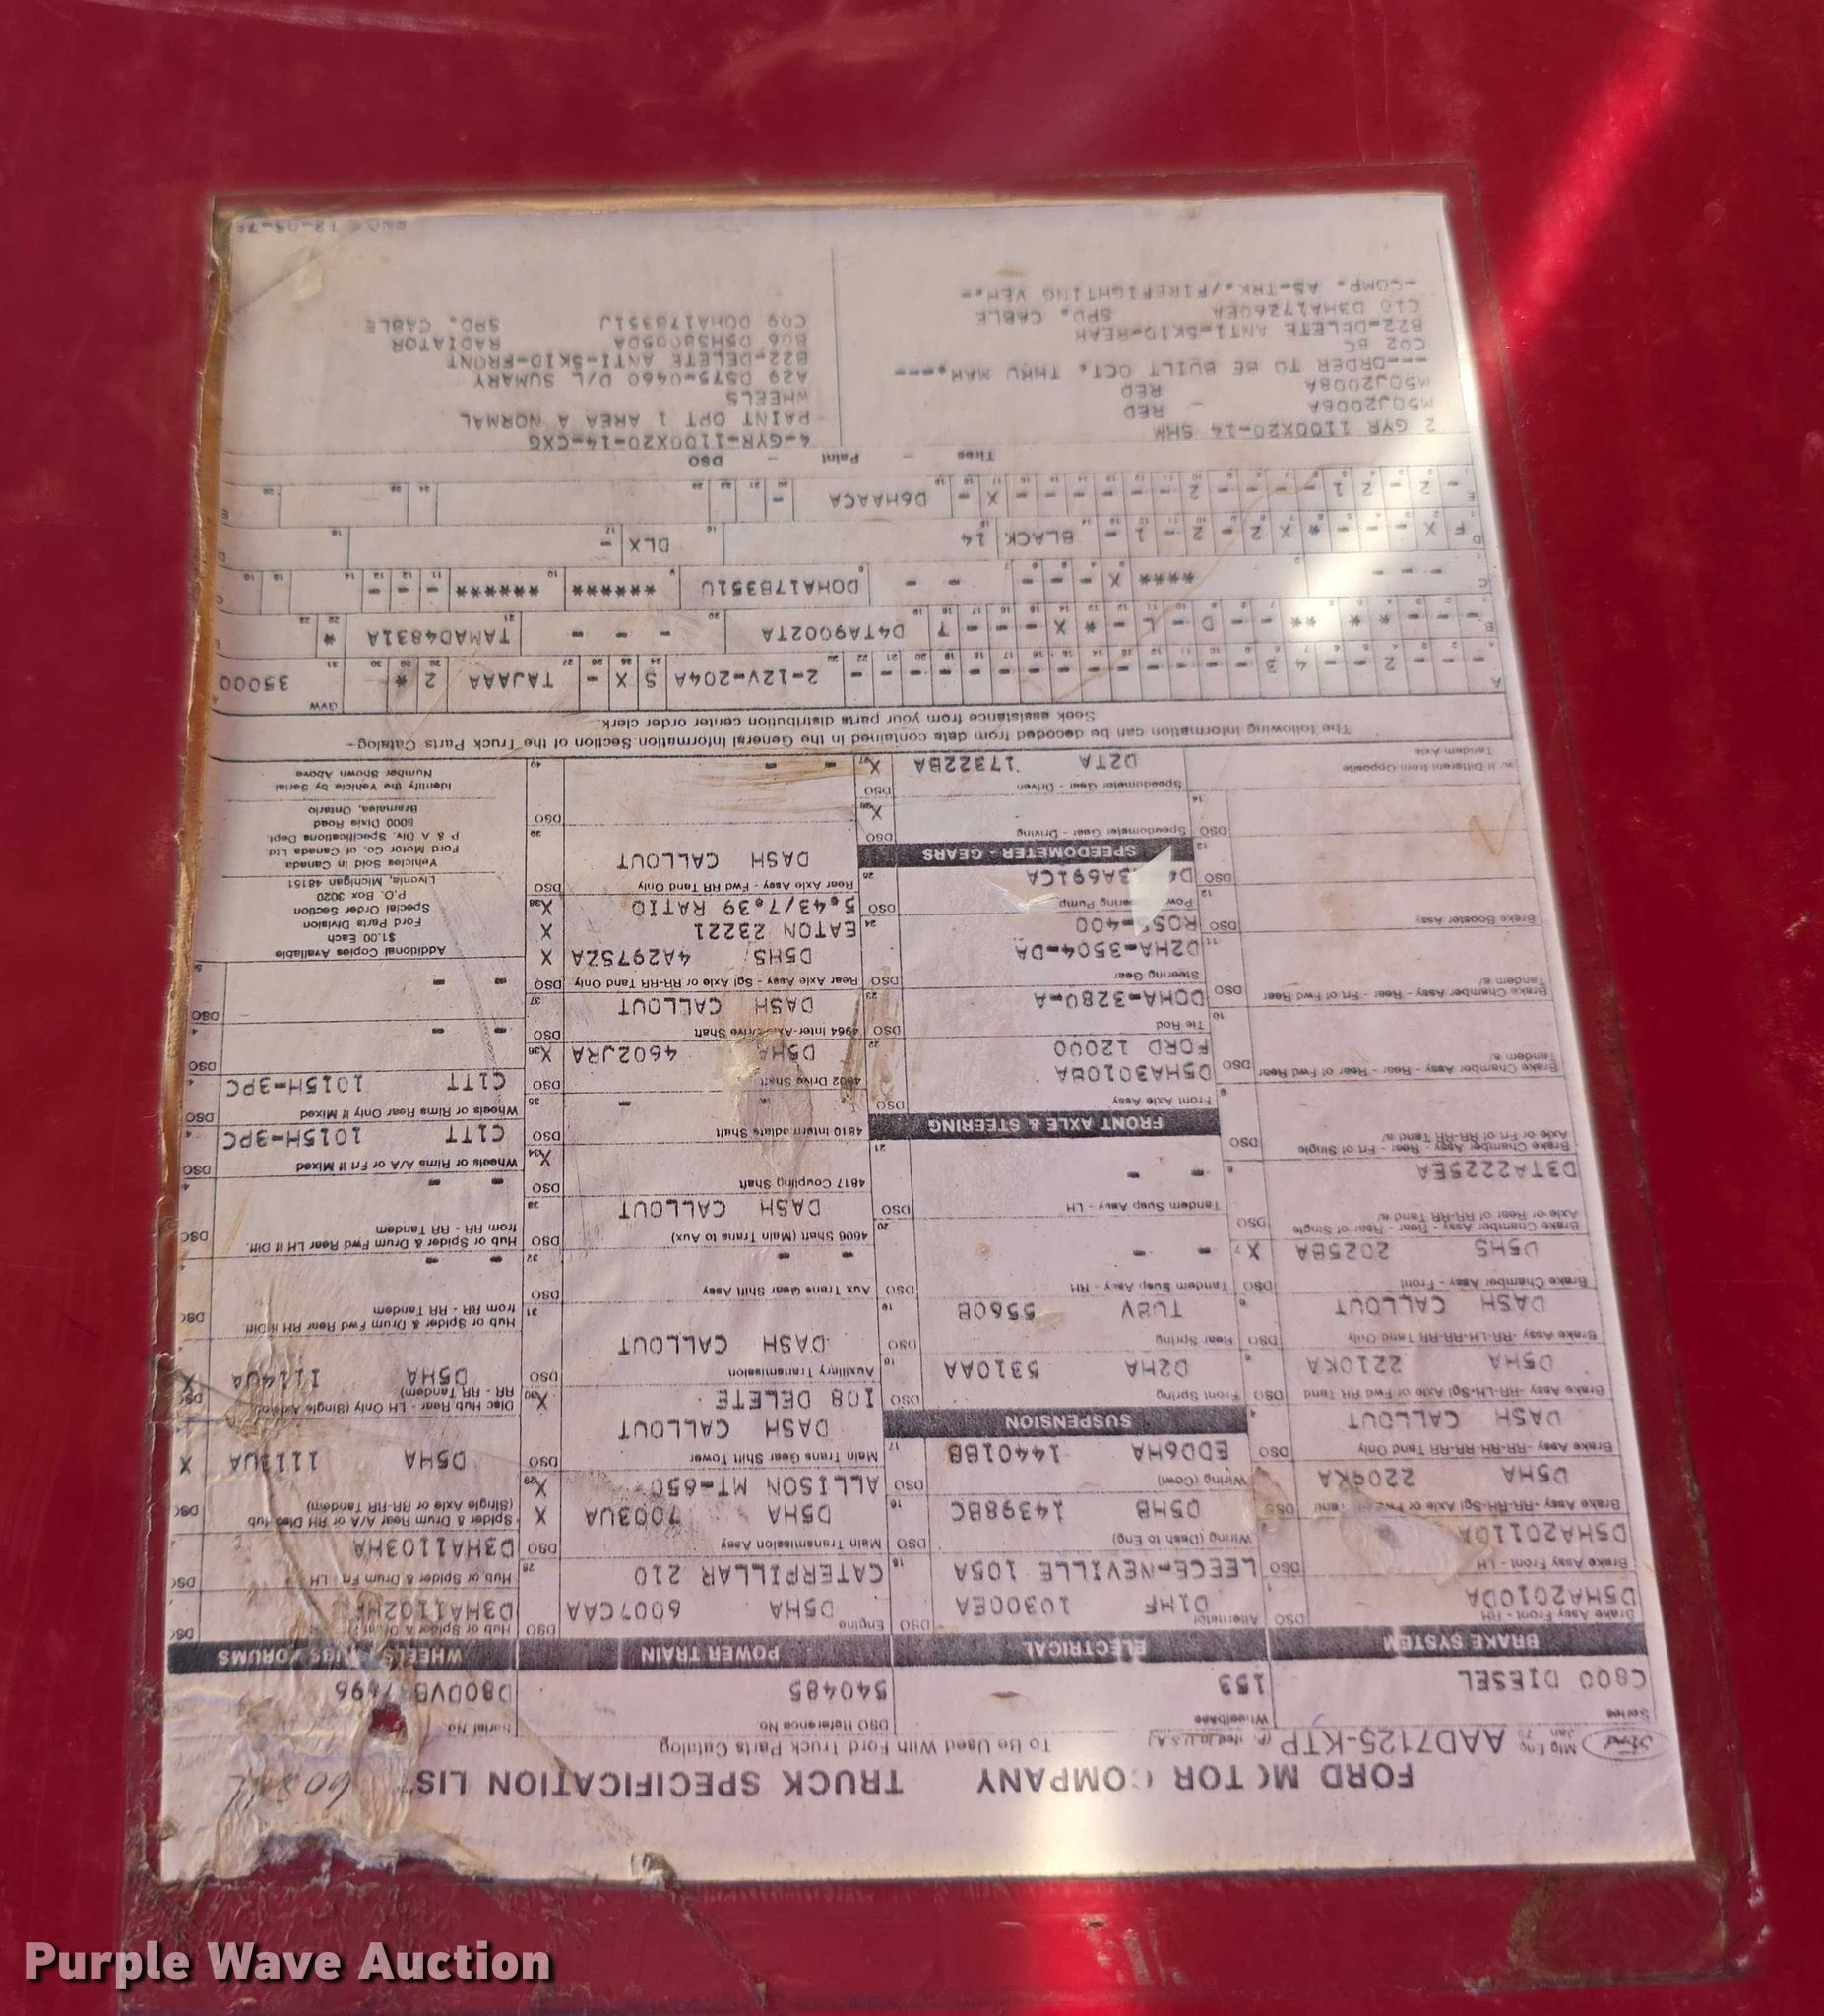 FORD MOTOR COMPANY TRUCK SPECIFICATION LIST
Ford Mfg Eng Jan 75 AAD7125-KTP To Be Used With Ford Truck Parts Catalog
Series Wheelbase DSO Reference No. Serial No.
C800 DIESEL 153 540485
BRAKE SYSTEM
Brake Assy Front - RH
D5HA2010DA
Brake Assy Front - LH
D5HA2011DA
D5HA 2209KA
Brake Assy -RR-RH-RR-RR Tand Only
DASH CALLOUT
Brake Assy -RR-LH-Sgl Axle or Fwd RR Tand
D5HA 2210KA
Brake Assy -RR-LH-RR-RR Tand Only
DASH CALLOUT
Brake Chamber Assy - Front
D5HS 2025BA X
Brake Chamber Assy - Rear - Rear of Single
Axle or Rear of RR-RR Tand a/
D3TA2225EA
Brake Chamber Assy - Rear - Frt of Single
Axle or Frt of RR-RR Tand a/
Brake Chamber Assy - Rear - Rear of Fwd Rear
Tandem a/
Brake Chamber Assy - Rear - Frt of Fwd Rear
Tandem a/
Brake Booster Assy
a/ If Different from Opposite
Tandem Axle
ELECTRICAL
Alternator
D1HF 10300EA
LEECE-NEVILLE 105A
Wiring (Dash to Eng)
D5HB 14398BC
Wiring (Cowl)
EDD6HA 14401BB
SUSPENSION
Front Spring
D2HA 5310AA
Rear Spring
TU8V 5560B
Tandem Susp Assy - RH
- -
Tandem Susp Assy - LH
- -
FRONT AXLE & STEERING
Front Axle Assy
D5HA3010BA
FORD 12000
Tie Rod
DOHA-3280-A
Steering Gear
D2HA-3504-DA
Power Steering Pump
SPEEDOMETER - GEARS
Speedometer Gear - Driving
Speedometer Gear - Driven
D2TA 17322BA
POWER TRAIN
Engine
D5HA 6007CAA
CATERPILLAR 210
Main Transmission Assy
D5HA 7003UA X
ALLISON MT-650 X
Main Trans Gear Shift Tower
DASH CALLOUT
I08 DELETE X
Auxiliary Transmission
DASH CALLOUT
Aux Trans Gear Shift Assy
- -
4606 Shaft (Main Trans to Aux)
DASH CALLOUT
4817 Coupling Shaft
4810 Intermediate Shaft
- -
4602 Drive Shaft
D5HA 4602JRA X
4964 Inter-Axle Drive Shaft
DASH CALLOUT
Rear Axle Assy - Sgl Axle or RR-RR Tand Only
D5HS 4A297SZA X
EATON 23221 X
5.43/7.39 RATIO X
Rear Axle Assy - Fwd RR Tand Only
DASH CALLOUT
- - X
WHEELS, HUBS, DRUMS
D3HA1103HA
Spider & Drum Rear A/A or RH Disc Hub
(Single Axle or RR-RR Tandem)
D5HA 1113UA X
Disc Hub Rear - LH Only (Single Axle or
RR - RR Tandem)
D5HA 1114UA X
Hub or Spider & Drum Fwd Rear RH If Diff.
from RR - RR Tandem
- -
Hub or Spider & Drum Fwd Rear LH If Diff.
from RR - RR Tandem
- -
Wheels or Rims A/A or Frt If Mixed
C1TT 1015H-3PC
Wheels or Rims Rear Only If Mixed
C1TT 1015H-3PC
- -
- -
Additional Copies Available
$1.00 Each
Ford Parts Division
Special Order Section
P.O. Box 3020
Livonia, Michigan 48151
Vehicles Sold in Canada
Ford Motor Co. of Canada Ltd.
P & A Div. Specifications Dept.
8000 Dixie Road
Bramalea, Ontario
Identify the Vehicle by Serial
Number Shown Above
The following information can be decoded from data contained in the General Information Section of the Truck Parts Catalog -
Seek assistance from your parts distribution center order clerk.
A 2 4 3 2-12V-204A S X - TAJAAA 2 * GVW 35000
B D L * X T D4TA9002TA - - - TAMAD4831A *
C **** X DOHA17B351U ****** ******
D F X * X 2 2 1 BLACK 14 DLX -
E 2 2 1 2 X D6HAACA -
Tires - Paint - DSO
2 GYR 1100X20-14 SHM
M5QJ2008A RED
M5QJ2008A - RED
---ORDER TO BE BUILT OCT. THRU MAR.----
C02 BC
B22-DELETE ANTI-SKID-REAR
C10 D3HA17260EA SPD. CABLE
-COMP. AS-TRK./FIREFIGHTING VEH.-
4-GYR-1100X20-14-CXG
PAINT OPT 1 AREA A NORMAL
WHEELS
A29 DS75-0460 D/L SUMARY
B22-DELETE ANTI-SKID-FRONT
B06 D5HS8005DA RADIATOR
C09 DOHA17B351J SPD. CABLE
Purple Wave Auction